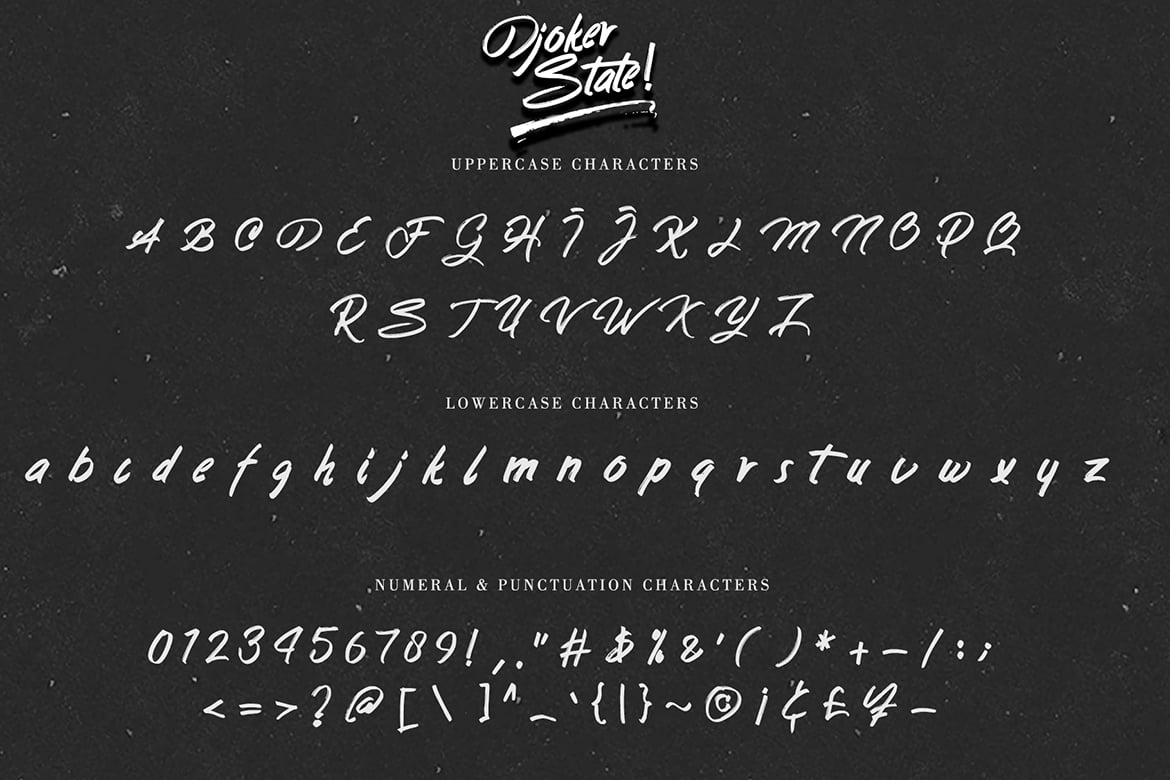 Djoker
State!
UPPERCASE CHARACTERS
A B C D E F G H I J K L M N O P Q
R S T U V W X Y Z
LOWERCASE CHARACTERS
a b c d e f g h i j k l m n o p q r s t u v w x y z
NUMERAL & PUNCTUATION CHARACTERS
0 1 2 3 4 5 6 7 8 9 ! , . " # $ % & ' ( ) * + – / : ;
< = > ? @ [ \ ] ^ _ ` { | } ~ © ¡ ¢ £ ¥ –